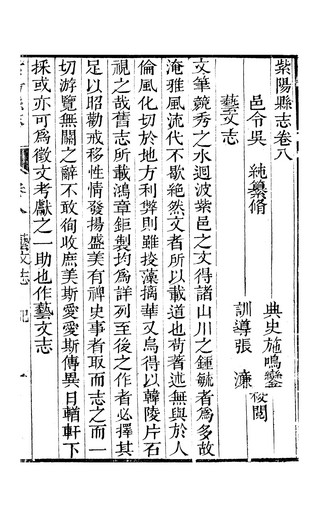 紫陽縣志卷八
典史施鳴鑾
邑令吳 純纂脩 校閱
訓導張 濂
藝文志
文筆競秀之水迴波紫邑之文得諸山川之鍾毓者為多故
淹雅風流代不歇絶然文者所以載道也苟著述無與於人
倫風化切於地方利弊則雖掞藻摛華又烏得以韓陵片石
視之哉舊志所載鴻章鉅製均為詳列至後之作者必擇其
足以昭勸戒移性情發揚盛美有裨史事者取而志之而一
切游覽無關之辭不敢徇收庶美斯愛愛斯傳異日輶軒下
採或亦可為徵文考獻之一助也作藝文志
藝文志 記 一